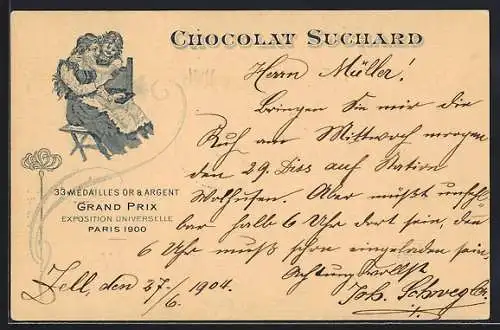 CHOCOLAT SUCHARD
Herrn Müller!
Bringen Sie mir die
Kuh am Mittwoch morgen
den 29. Diss auf Station
Wolhusen. Aber müßt unfehl
bar halb 6 Uhr dort sein, den
6 Uhr muß schon eingeladen sein
Achtungsvollst
Joh. Schwegler
33 MÉDAILLES OR & ARGENT
GRAND PRIX
EXPOSITION UNIVERSELLE
PARIS 1900
Zell, den 27/6. 1904.